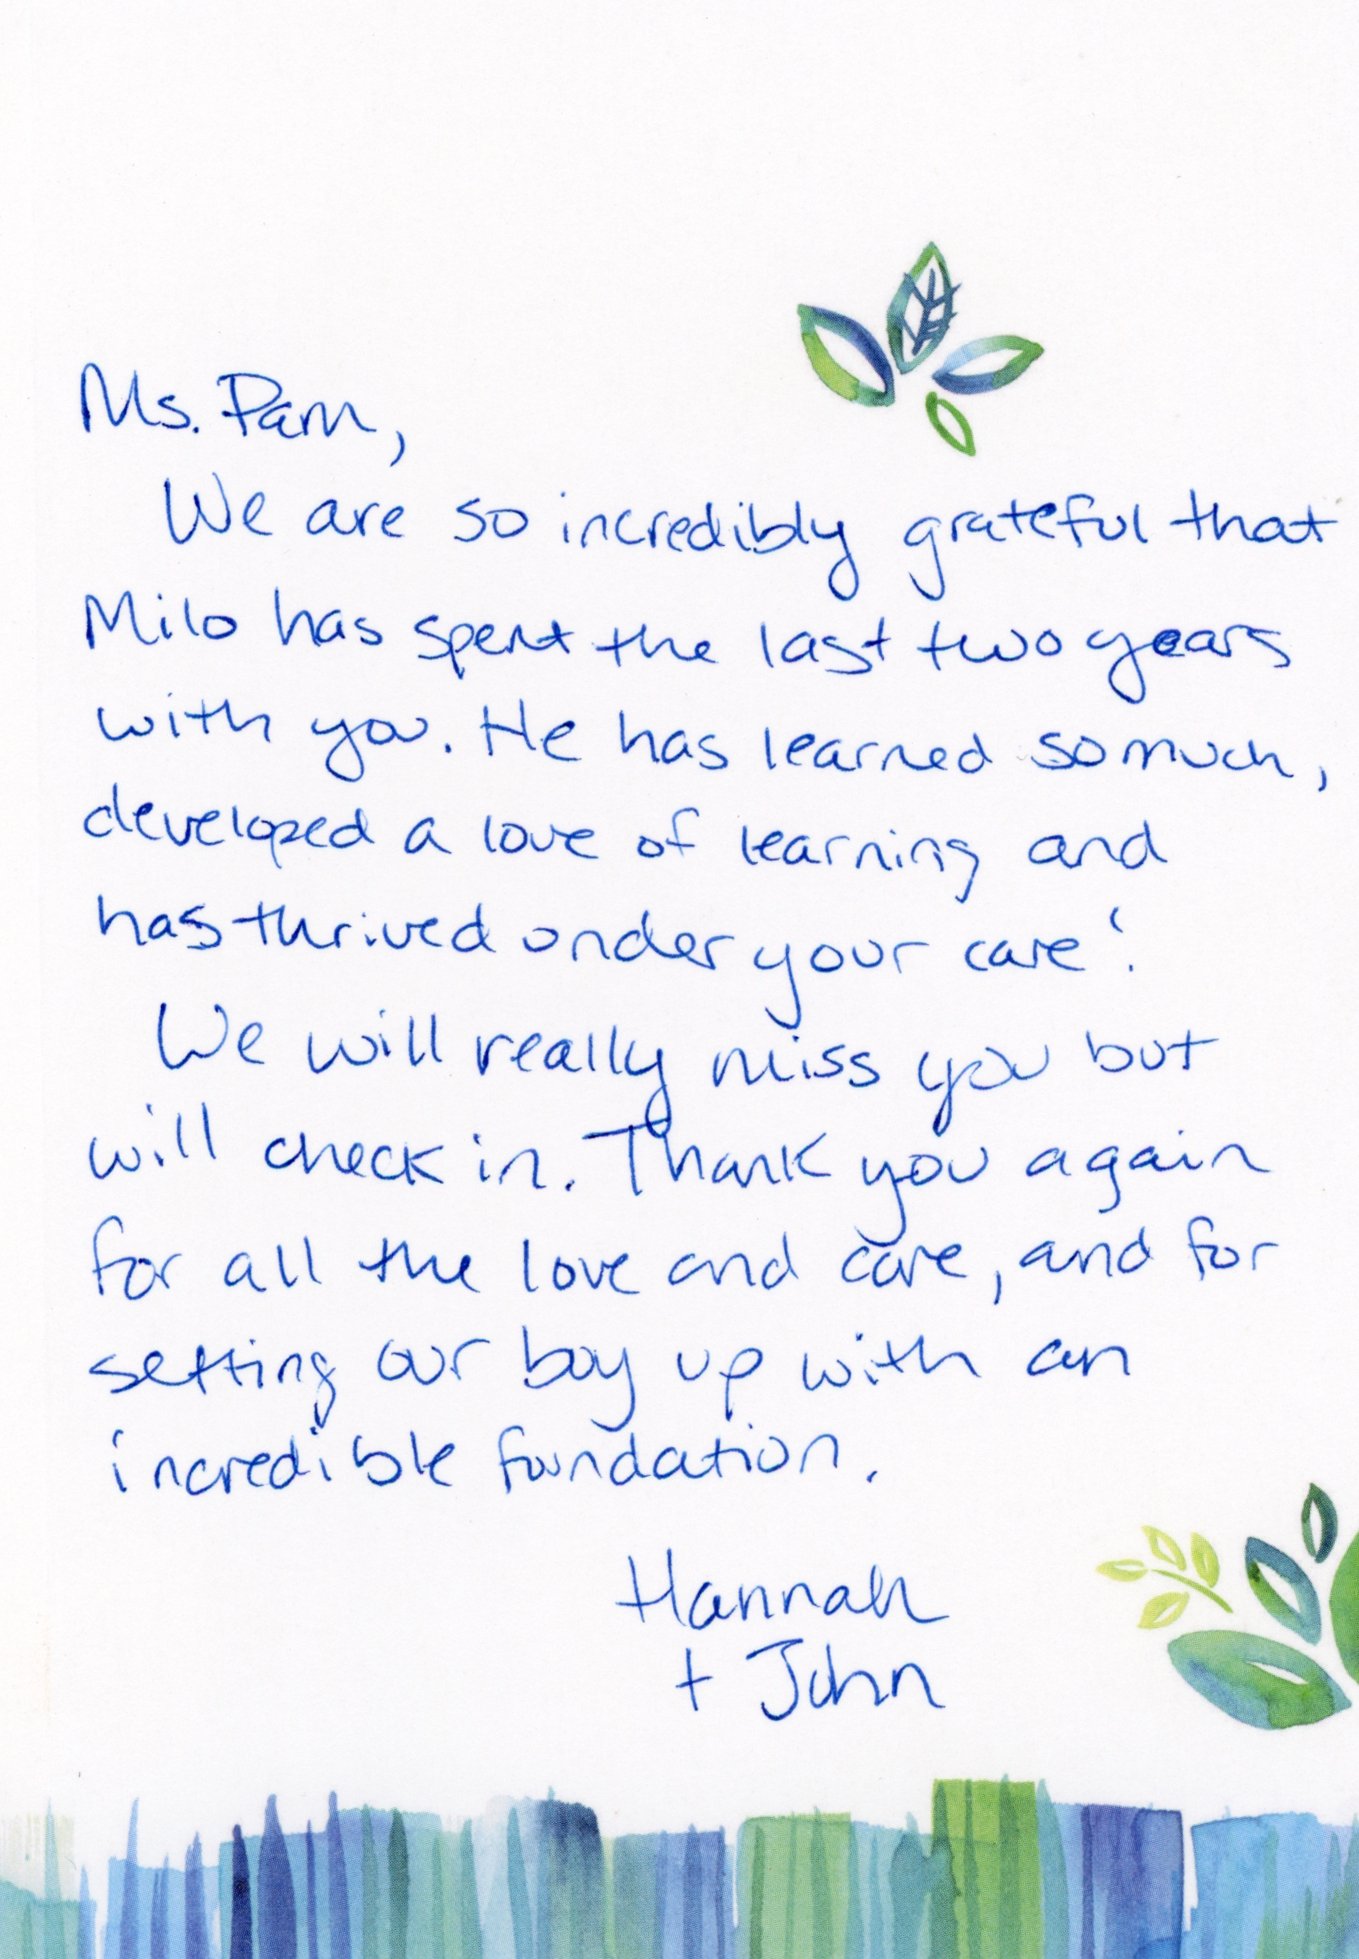 Ms. Pam,
We are so incredibly grateful that
Milo has spent the last two years
with you. He has learned so much,
developed a love of learning and
has thrived under your care!
We will really miss you but
will check in. Thank you again
for all the love and care, and for
setting our boy up with an
incredible foundation.
Hannah
+ John